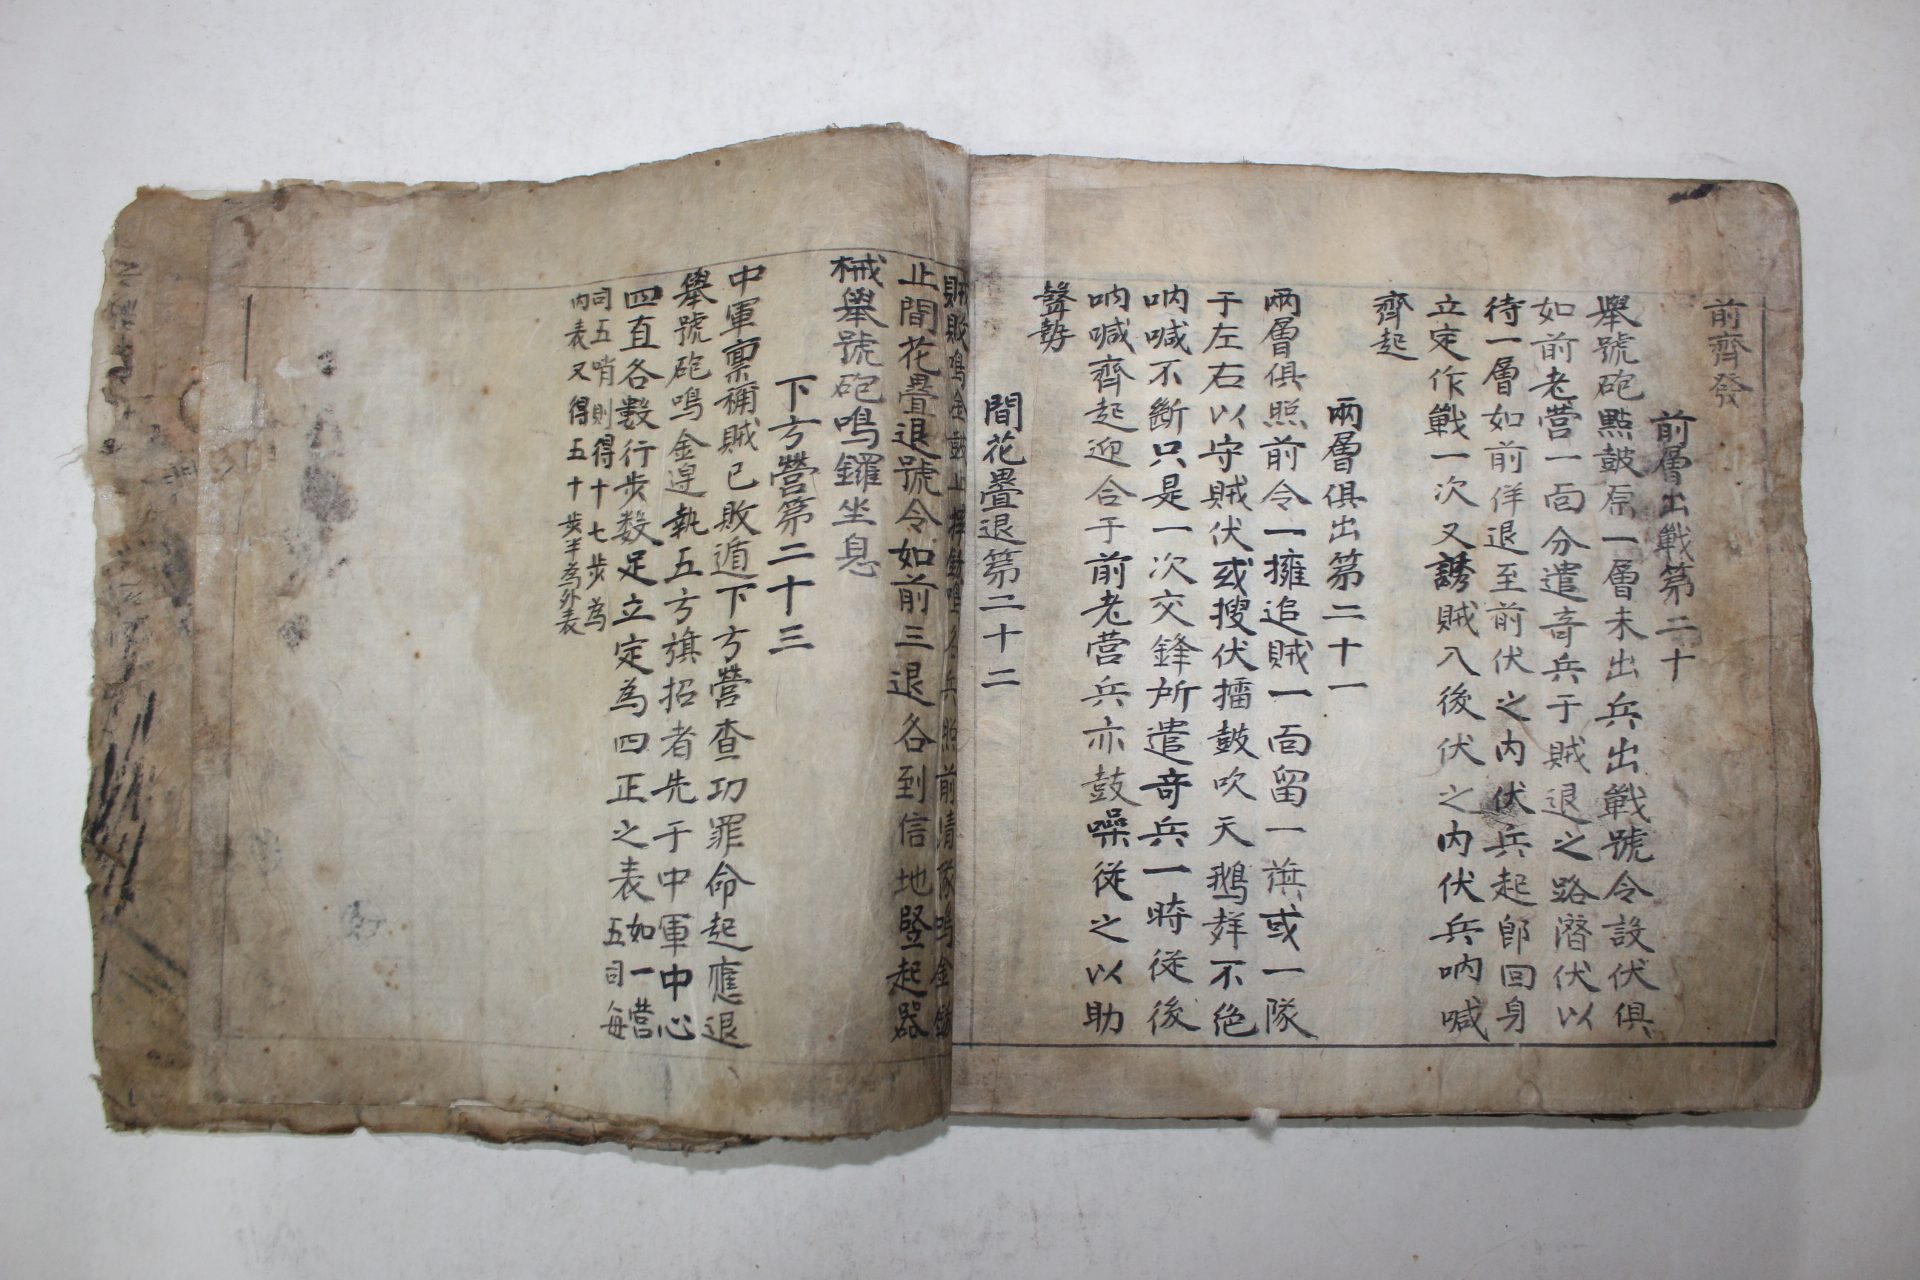 前齊發
前層出戰第二十
舉號砲點鼓原一層未出兵出戰號令設伏俱
如前老营一面分遣奇兵于賊退之路潛伏以
待一層如前佯退至前伏之內伏兵起即回身
立定作戰一次又誘賊入後伏之內伏兵吶喊
齊起
兩層俱出第二十一
兩層俱照前令一擁追賊一面留一旗或一隊
于左右以守賊伏或搜伏擂鼓吹天鵝聲不絕
吶喊不斷只是一次交鋒所遣奇兵一時從後
吶喊齊起迎合于前老营兵亦鼓噪從之以助
聲勢
間花疊退第二十二
賊敗鳴金鼓止摔鈸鳴各兵照前清隊鳴金鼓
止間花疊退號令如前三退各到信地竪起器
械舉號砲鳴鑼坐息
下方營第二十三
中軍禀稱賊已敗遁下方營查功罪命起應退
舉號砲鳴金邊執五方旗招者先于中軍中心
四直各數行步数足立定為四正之表如一營五司每
司五哨則得十七步為
內表又得五十步半為外表